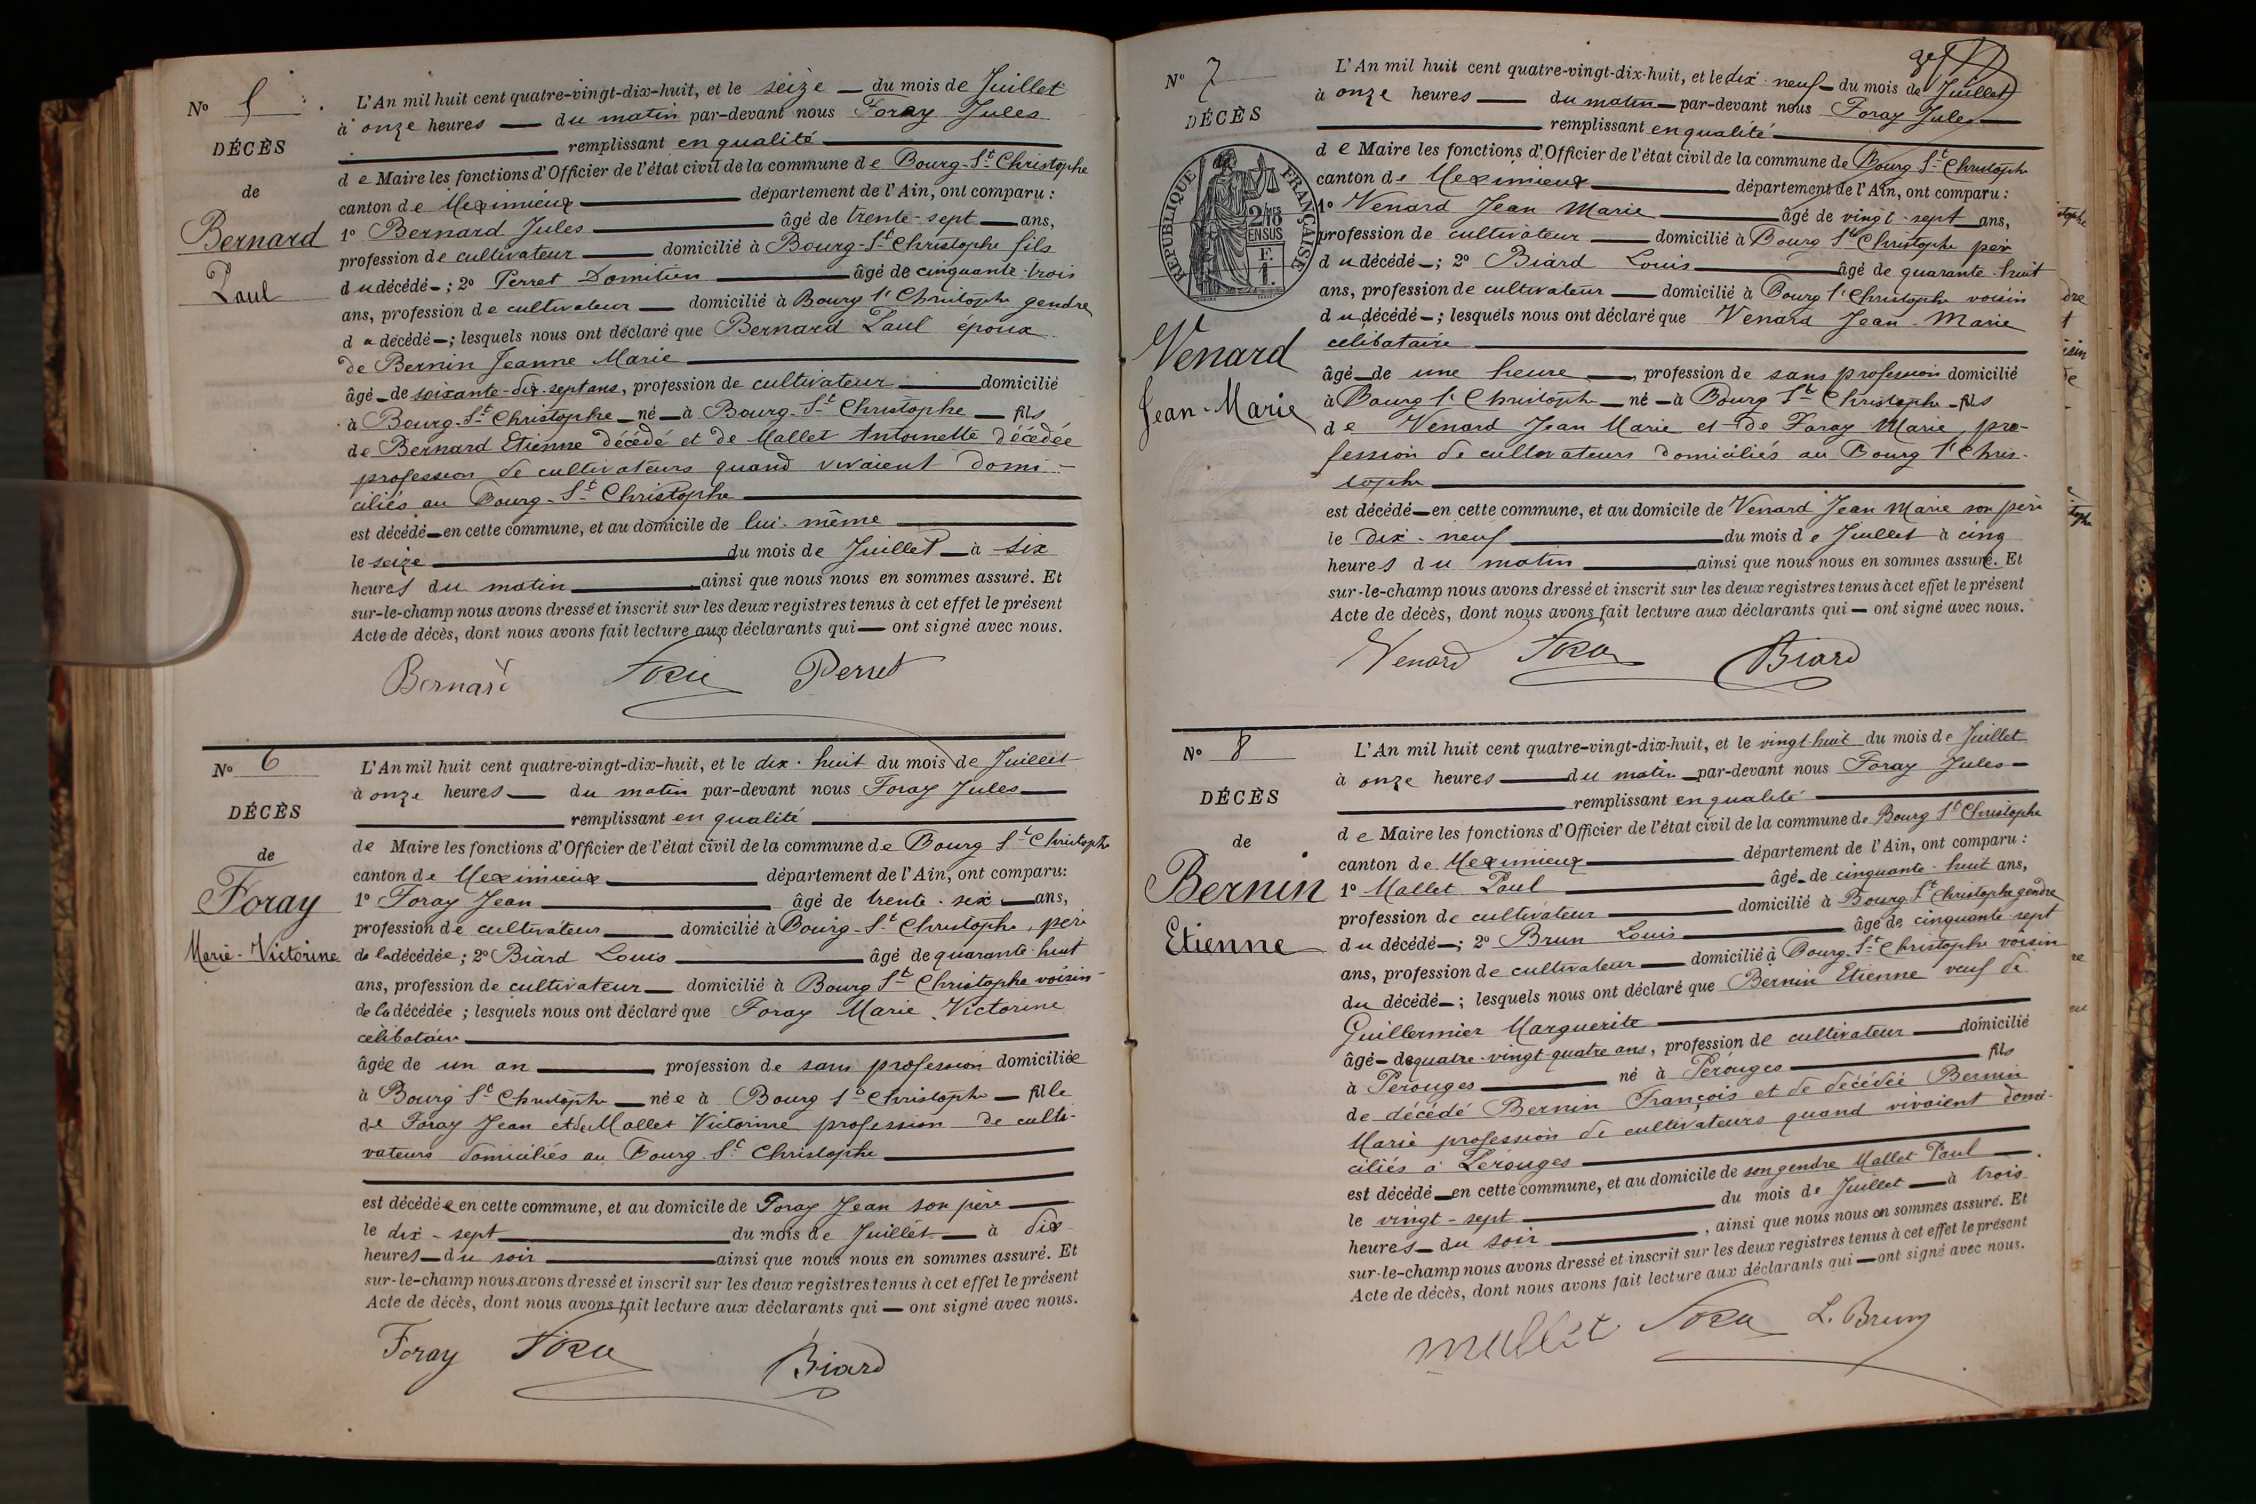 N° 5
DÉCÈS
de
Bernard
Paul
L'An mil huit cent quatre-vingt-dix-huit, et le seize — du mois de Juillet
à onze heures — du matin par-devant nous Foray Jules
remplissant en qualité
de Maire les fonctions d'Officier de l'état civil de la commune de Bourg-St-Christophe
canton de Meximieux département de l'Ain, ont comparu :
1° Bernard Jules âgé de trente-sept ans,
profession de cultivateur domicilié à Bourg-St-Christophe fils
du décédé ; 2° Perret Domitien âgé de cinquante-trois
ans, profession de cultivateur domicilié à Bourg St Christophe gendre
du décédé ; lesquels nous ont déclaré que Bernard Paul époux
de Bernin Jeanne Marie
âgé de soixante-dix-sept ans, profession de cultivateur domicilié
à Bourg-St-Christophe né à Bourg-St-Christophe fils
de Bernard Etienne décédé et de Mallet Antoinette décédée
profession de cultivateurs quand vivaient domi-
ciliés au Bourg-St-Christophe
est décédé en cette commune, et au domicile de lui-même
le seize du mois de Juillet à six
heures du matin ainsi que nous nous en sommes assuré. Et
sur-le-champ nous avons dressé et inscrit sur les deux registres tenus à cet effet le présent
Acte de décès, dont nous avons fait lecture aux déclarants qui — ont signé avec nous.
Bernard Perret
N° 6
DÉCÈS
de
Foray
Marie-Victorine
L'An mil huit cent quatre-vingt-dix-huit, et le dix-huit du mois de Juillet
à onze heures — du matin par-devant nous Foray Jules
remplissant en qualité
de Maire les fonctions d'Officier de l'état civil de la commune de Bourg St-Christophe
canton de Meximieux département de l'Ain, ont comparu:
1° Foray Jean âgé de trente-six ans,
profession de cultivateur domicilié à Bourg-St-Christophe, père
de la décédée ; 2° Biard Louis âgé de quarante-huit
ans, profession de cultivateur domicilié à Bourg St-Christophe voisin
de la décédée ; lesquels nous ont déclaré que Foray Marie Victorine
célibataire
âgée de un an profession de sans profession domiciliée
à Bourg St Christophe née à Bourg St Christophe fille
de Foray Jean et de Mallet Victorine profession de culti-
vateurs domiciliés au Bourg-St-Christophe
est décédée en cette commune, et au domicile de Foray Jean son père
le dix-sept du mois de Juillet à dix
heures du soir ainsi que nous nous en sommes assuré. Et
sur-le-champ nous avons dressé et inscrit sur les deux registres tenus à cet effet le présent
Acte de décès, dont nous avons fait lecture aux déclarants qui — ont signé avec nous.
Foray Biard
N° 7
DÉCÈS
RÉPUBLIQUE FRANÇAISE
2/10mes
EN SUS
Venard
Jean-Marie
L'An mil huit cent quatre-vingt-dix-huit, et le dix-neuf du mois de Juillet
à onze heures — du matin par-devant nous Foray Jules
remplissant en qualité
de Maire les fonctions d'Officier de l'état civil de la commune de Bourg St-Christophe
canton de Meximieux département de l'Ain, ont comparu :
1° Venard Jean Marie âgé de vingt-sept ans,
profession de cultivateur domicilié à Bourg St Christophe père
du décédé ; 2° Biard Louis âgé de quarante-huit
ans, profession de cultivateur domicilié à Bourg St Christophe voisin
du décédé ; lesquels nous ont déclaré que Venard Jean-Marie
célibataire
âgé de une heure profession de sans profession domicilié
à Bourg St Christophe né à Bourg St Christophe fils
de Venard Jean Marie et de Foray Marie, pro-
fession de cultivateurs domiciliés au Bourg St Chris-
tophe
est décédé en cette commune, et au domicile de Venard Jean Marie son père
le dix-neuf du mois de Juillet à cinq
heures du matin ainsi que nous nous en sommes assuré. Et
sur-le-champ nous avons dressé et inscrit sur les deux registres tenus à cet effet le présent
Acte de décès, dont nous avons fait lecture aux déclarants qui — ont signé avec nous.
Venard Biard
N° 8
DÉCÈS
de
Bernin
Etienne
L'An mil huit cent quatre-vingt-dix-huit, et le vingt-huit du mois de Juillet
à onze heures du matin par-devant nous Foray Jules
remplissant en qualité
de Maire les fonctions d'Officier de l'état civil de la commune de Bourg St Christophe
canton de Meximieux département de l'Ain, ont comparu :
1° Mallet Paul âgé de cinquante-huit ans,
profession de cultivateur domicilié à Bourg St Christophe gendre
du décédé ; 2° Brun Louis âgé de cinquante-sept
ans, profession de cultivateur domicilié à Bourg-St-Christophe voisin
du décédé ; lesquels nous ont déclaré que Bernin Etienne veuf de
Guillermier Marguerite
âgé de quatre-vingt-quatre ans, profession de cultivateur domicilié
à Pérouges né à Pérouges fils
de décédé Bernin François et de décédée Bernin
Marie profession de cultivateurs quand vivaient domi-
ciliés à Pérouges
est décédé en cette commune, et au domicile de son gendre Mallet Paul
le vingt-sept du mois de Juillet à trois
heures du soir, ainsi que nous nous en sommes assuré. Et
sur-le-champ nous avons dressé et inscrit sur les deux registres tenus à cet effet le présent
Acte de décès, dont nous avons fait lecture aux déclarants qui — ont signé avec nous.
Mallet L. Brun